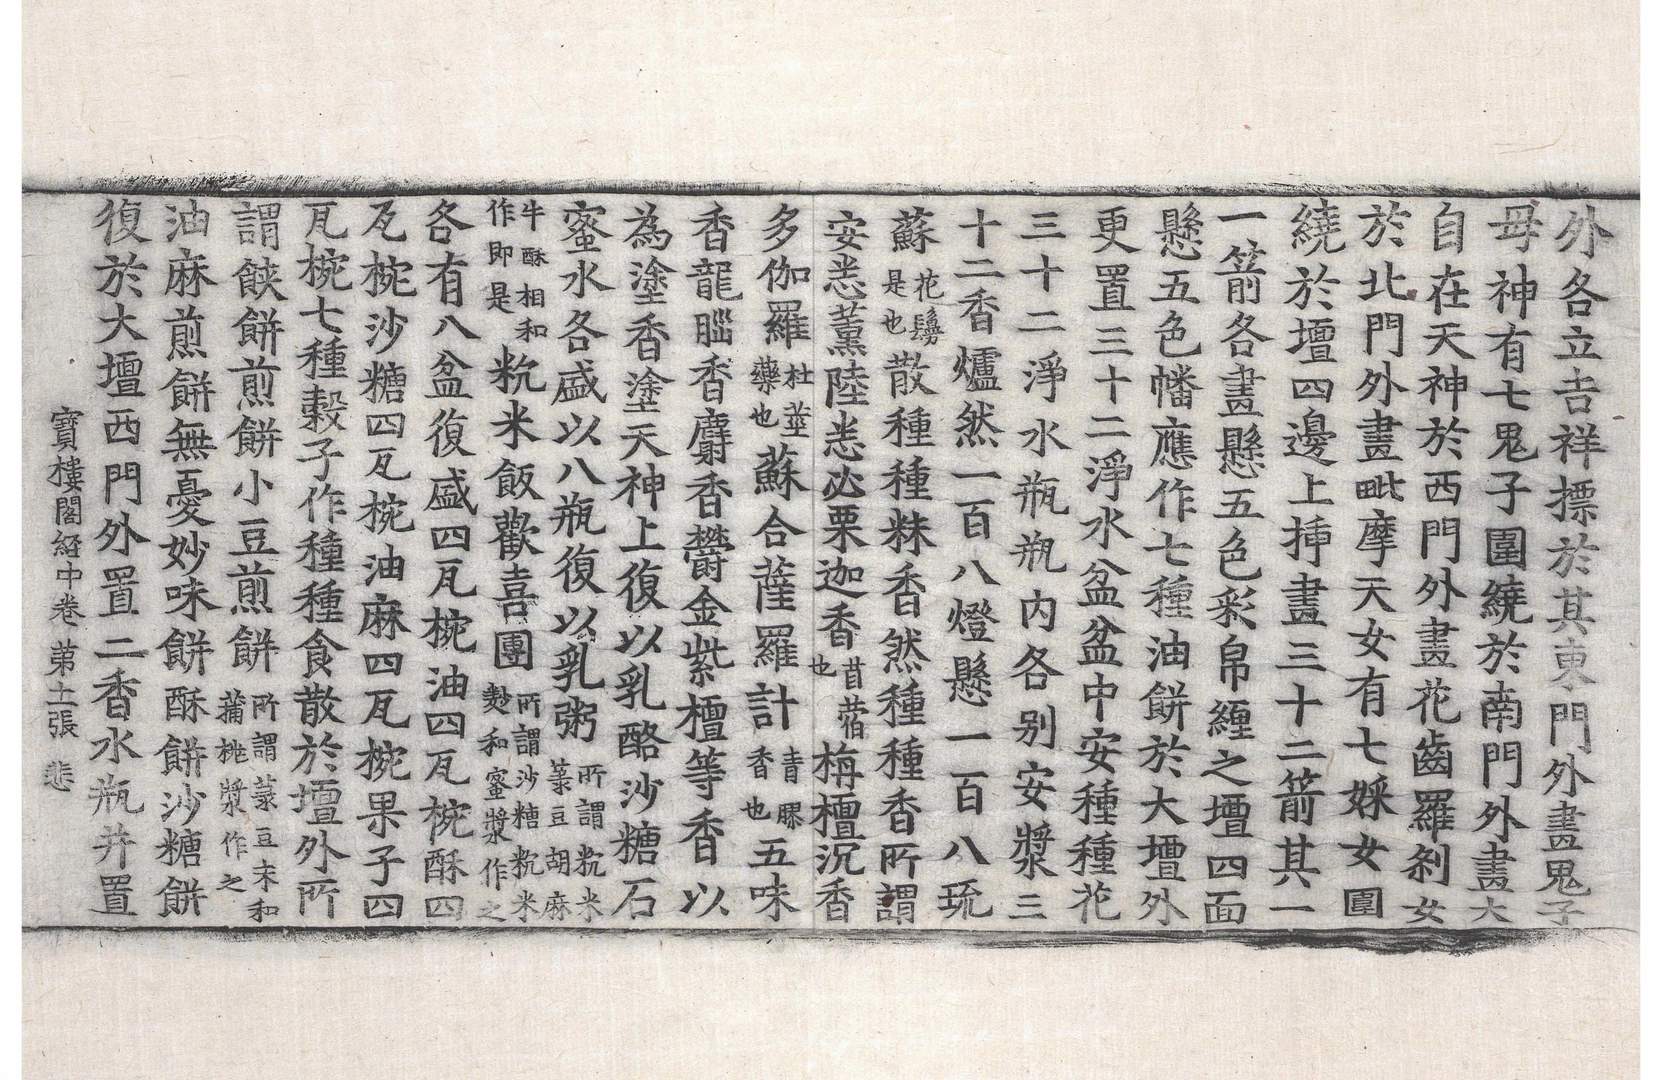 外各立吉祥摽於其東門外畫鬼子
母神有七鬼子圍繞於南門外畫大
自在天神於西門外畫花齒羅剎女
於北門外畫毗摩天女有七婇女圍
繞於壇四邊上揷畫三十二箭其一
一箭各畫懸五色彩帛纏之壇四面
懸五色幡應作七種油餅於大壇外
更置三十二淨水盆盆中安種種花
三十二淨水瓶瓶內各別安漿三
十二香爐然一百八燈懸一百八琉
蘇花鬘是也散種種粖香然種種香所謂
安悉薰陸悉必栗迦香苜蓿也栴檀沉香
多伽羅杜莖藥也蘇合薩羅計青膠香也五味
香龍腦香麝香欝金紫檀等香以
為塗香塗天神上復以乳酪沙糖石
蜜水各盛以八瓶復以乳粥所謂粇米菉豆胡麻
牛酥相和作即是粇米飯歡喜團所謂沙糖粇米麨和蜜漿作之
各有八盆復盛四瓦椀油四瓦椀酥四
瓦椀沙糖四瓦椀油麻四瓦椀果子四
瓦椀七種穀子作種種食散於壇外所
謂餅煎餅小豆煎餅所謂菉豆末和蒱桃漿作之
油麻煎餅無憂妙味餅酥餅沙糖餅
復於大壇西門外置二香水瓶并置
寶樓閣經中卷 第十一張 悲